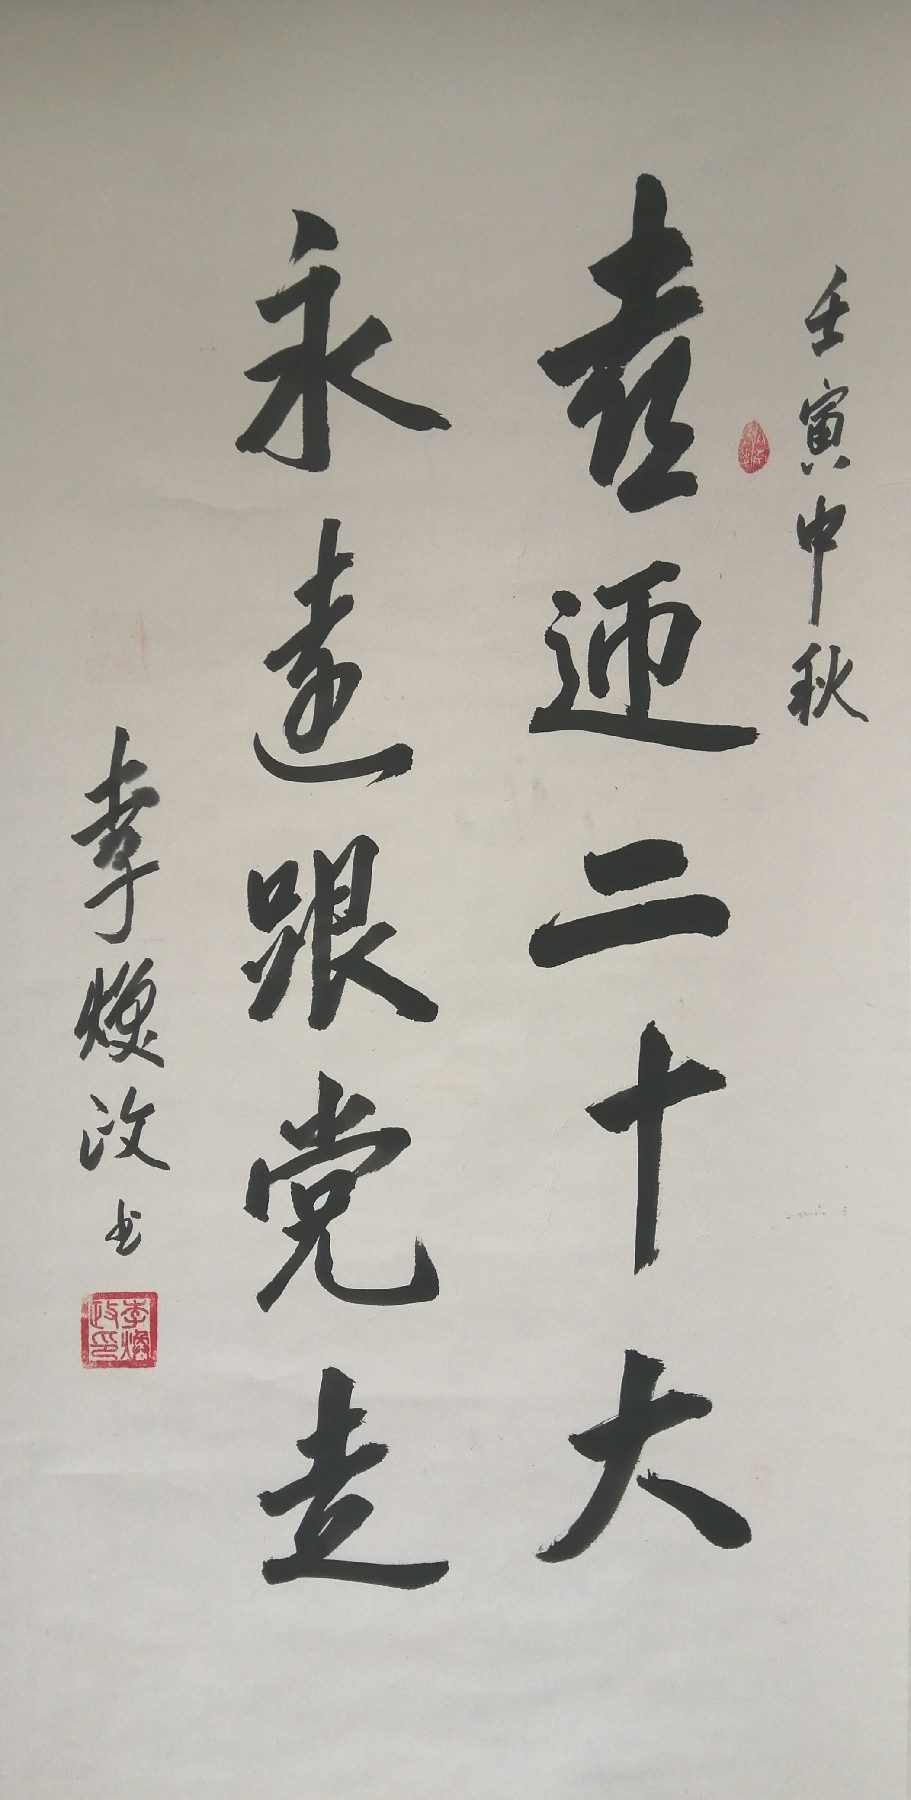 壬寅中秋
喜迎二十大
永远跟党走
李焕政书
李焕政印